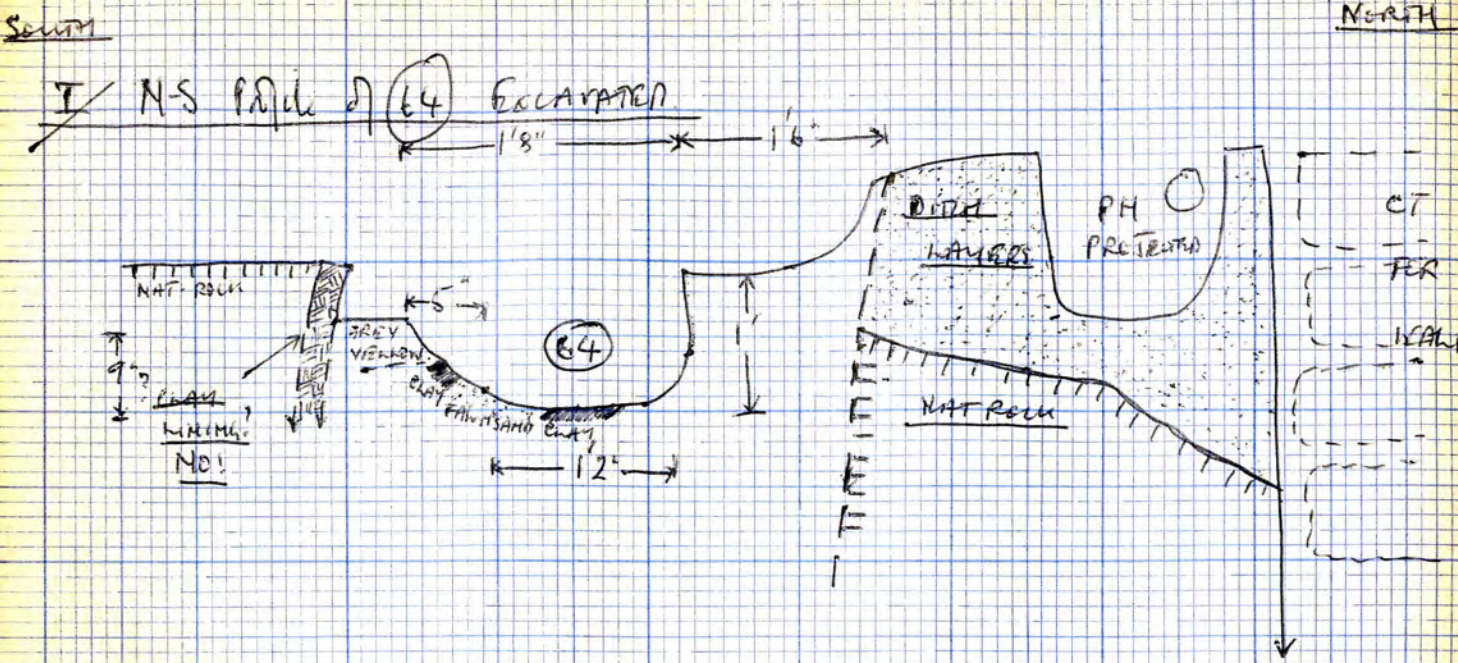 SOUTH
NORTH
I/ N-S Profile of 64 EXCAVATED
1'8"
1'6"
DITCH
LAYERS
PH
PROJECTED
CT
FER
NAT. ROCK
5"
GREY
YELLOW
64
1'
9"?
CLAY
LINING?
NO!
CLAY
FAWN SAND
CLAY
1'2"
NAT ROCK